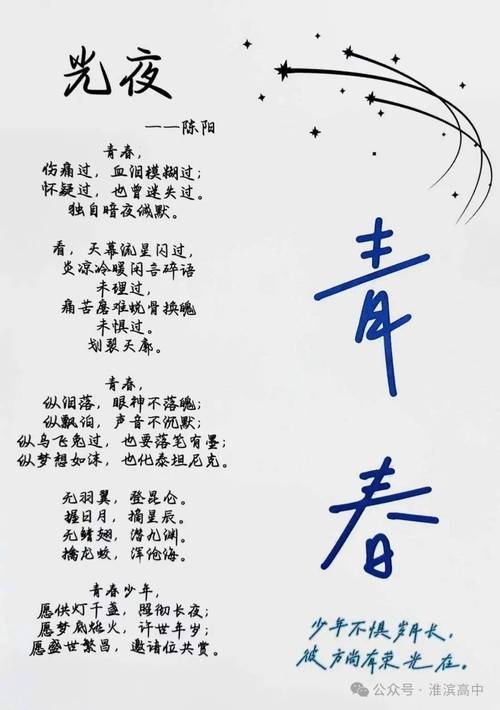 光夜
——陈阳
青春，
伤痛过，血泪模糊过；
怀疑过，也曾迷失过。
独自暗夜缄默。
看，天幕流星闪过，
炎凉冷暖闲言碎语
未理过，
痛苦磨难蜕骨换魄
未惧过。
划裂天廓。
青春，
纵泪落，眼神不落魄；
纵飘泊，声音不沉默；
纵乌飞兔过，也要落笔有墨；
纵梦想如沫，也化泰坦尼克。
无羽翼，登昆仑。
握日月，摘星辰。
无鳍翅，潜九渊。
擒龙蛟，浑沧海。
青春少年，
愿供灯千盏，照彻长夜；
愿梦底烙火，许世年岁；
愿盛世繁昌，邀请位共赏。
青
春
少年不惧岁月长，
彼方尚有荣光在。
公众号·淮滨高中